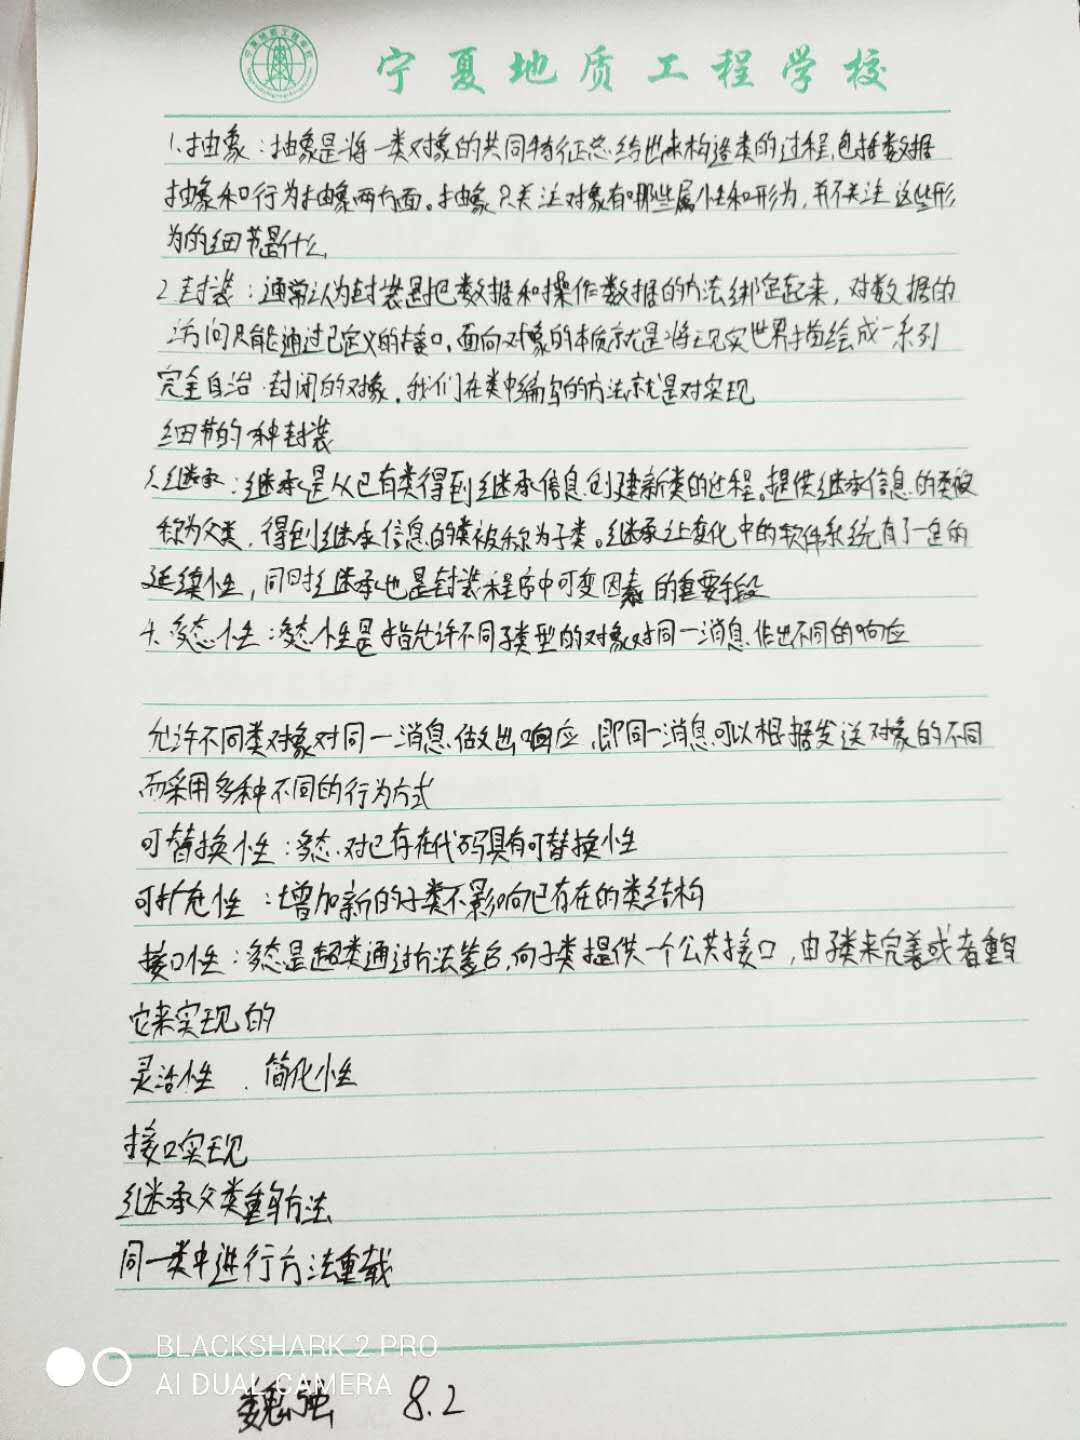 宁夏地质工程学校
1.抽象：抽象是将一类对象的共同特征总结出来构造类的过程,包括数据
抽象和行为抽象两方面。抽象只关注对象有哪些属性和形为,并不关注这些形
为的细节是什么,
2.封装：通常认为封装是把数据和操作数据的方法绑定起来，对数据的
访问只能通过已定义的接口,面向对象的本质就是将现实世界描绘成一系列
完全自治.封闭的对象.我们在类中编写的方法就是对实现
细节的种封装
3.继承：继承是从已有类得到继承信息创建新类的过程。提供继承信息的类被
称为父类，得到继承信息的类被称为子类。继承让变化中的软件系统有了一定的
延续性，同时继承也是封装程序中可变因素的重要手段
4.多态性：多态性是指允许不同子类型的对象对同一消息作出不同的响应
允许不同类对象对同一消息做出响应,即同一消息可以根据发送对象的不同
而采用多种不同的行为方式
可替换性：多态对已存在代码具有可替换性
可扩充性：增加新的子类不影响已存在的类结构
接口性：多态是超类通过方法签名,向子类提供一个公共接口，由子类来完善或者重写
它来实现的
灵活性．简化性
接口实现
继承父类重写方法
同一类中进行方法重载
BLACKSHARK 2 PRO
AI DUAL CAMERA
魏强 8.2